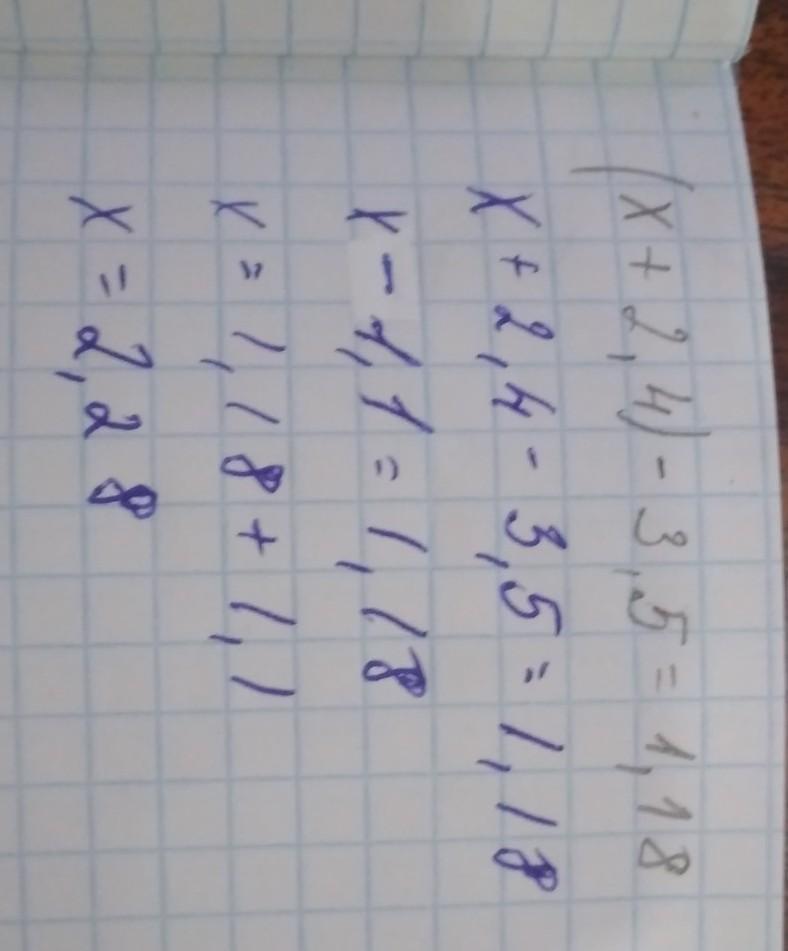 (x + 2,4) - 3,5 = 1,18
x + 2,4 - 3,5 = 1,18
x - 1,1 = 1,18
x = 1,18 + 1,1
x = 2,28